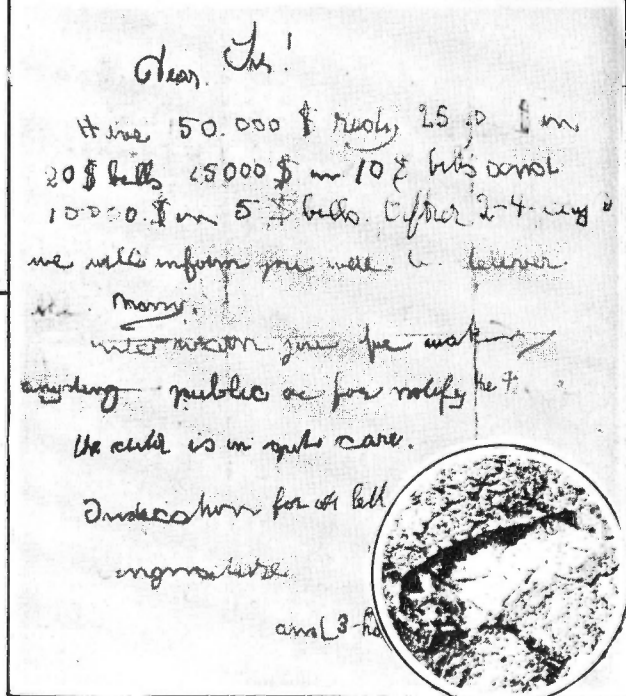 Dear Sir!
Have 50.000 $ redy 25 $ in
20 $ bills 15000 $ in 10 $ bills and
10000 $ in 5 $ bills After 2-4
we will inform you were to deliver
the Mony.
you for making
anyding public or for notify the
the child is in gute care.
Indication for all
singnature
and 3 ho